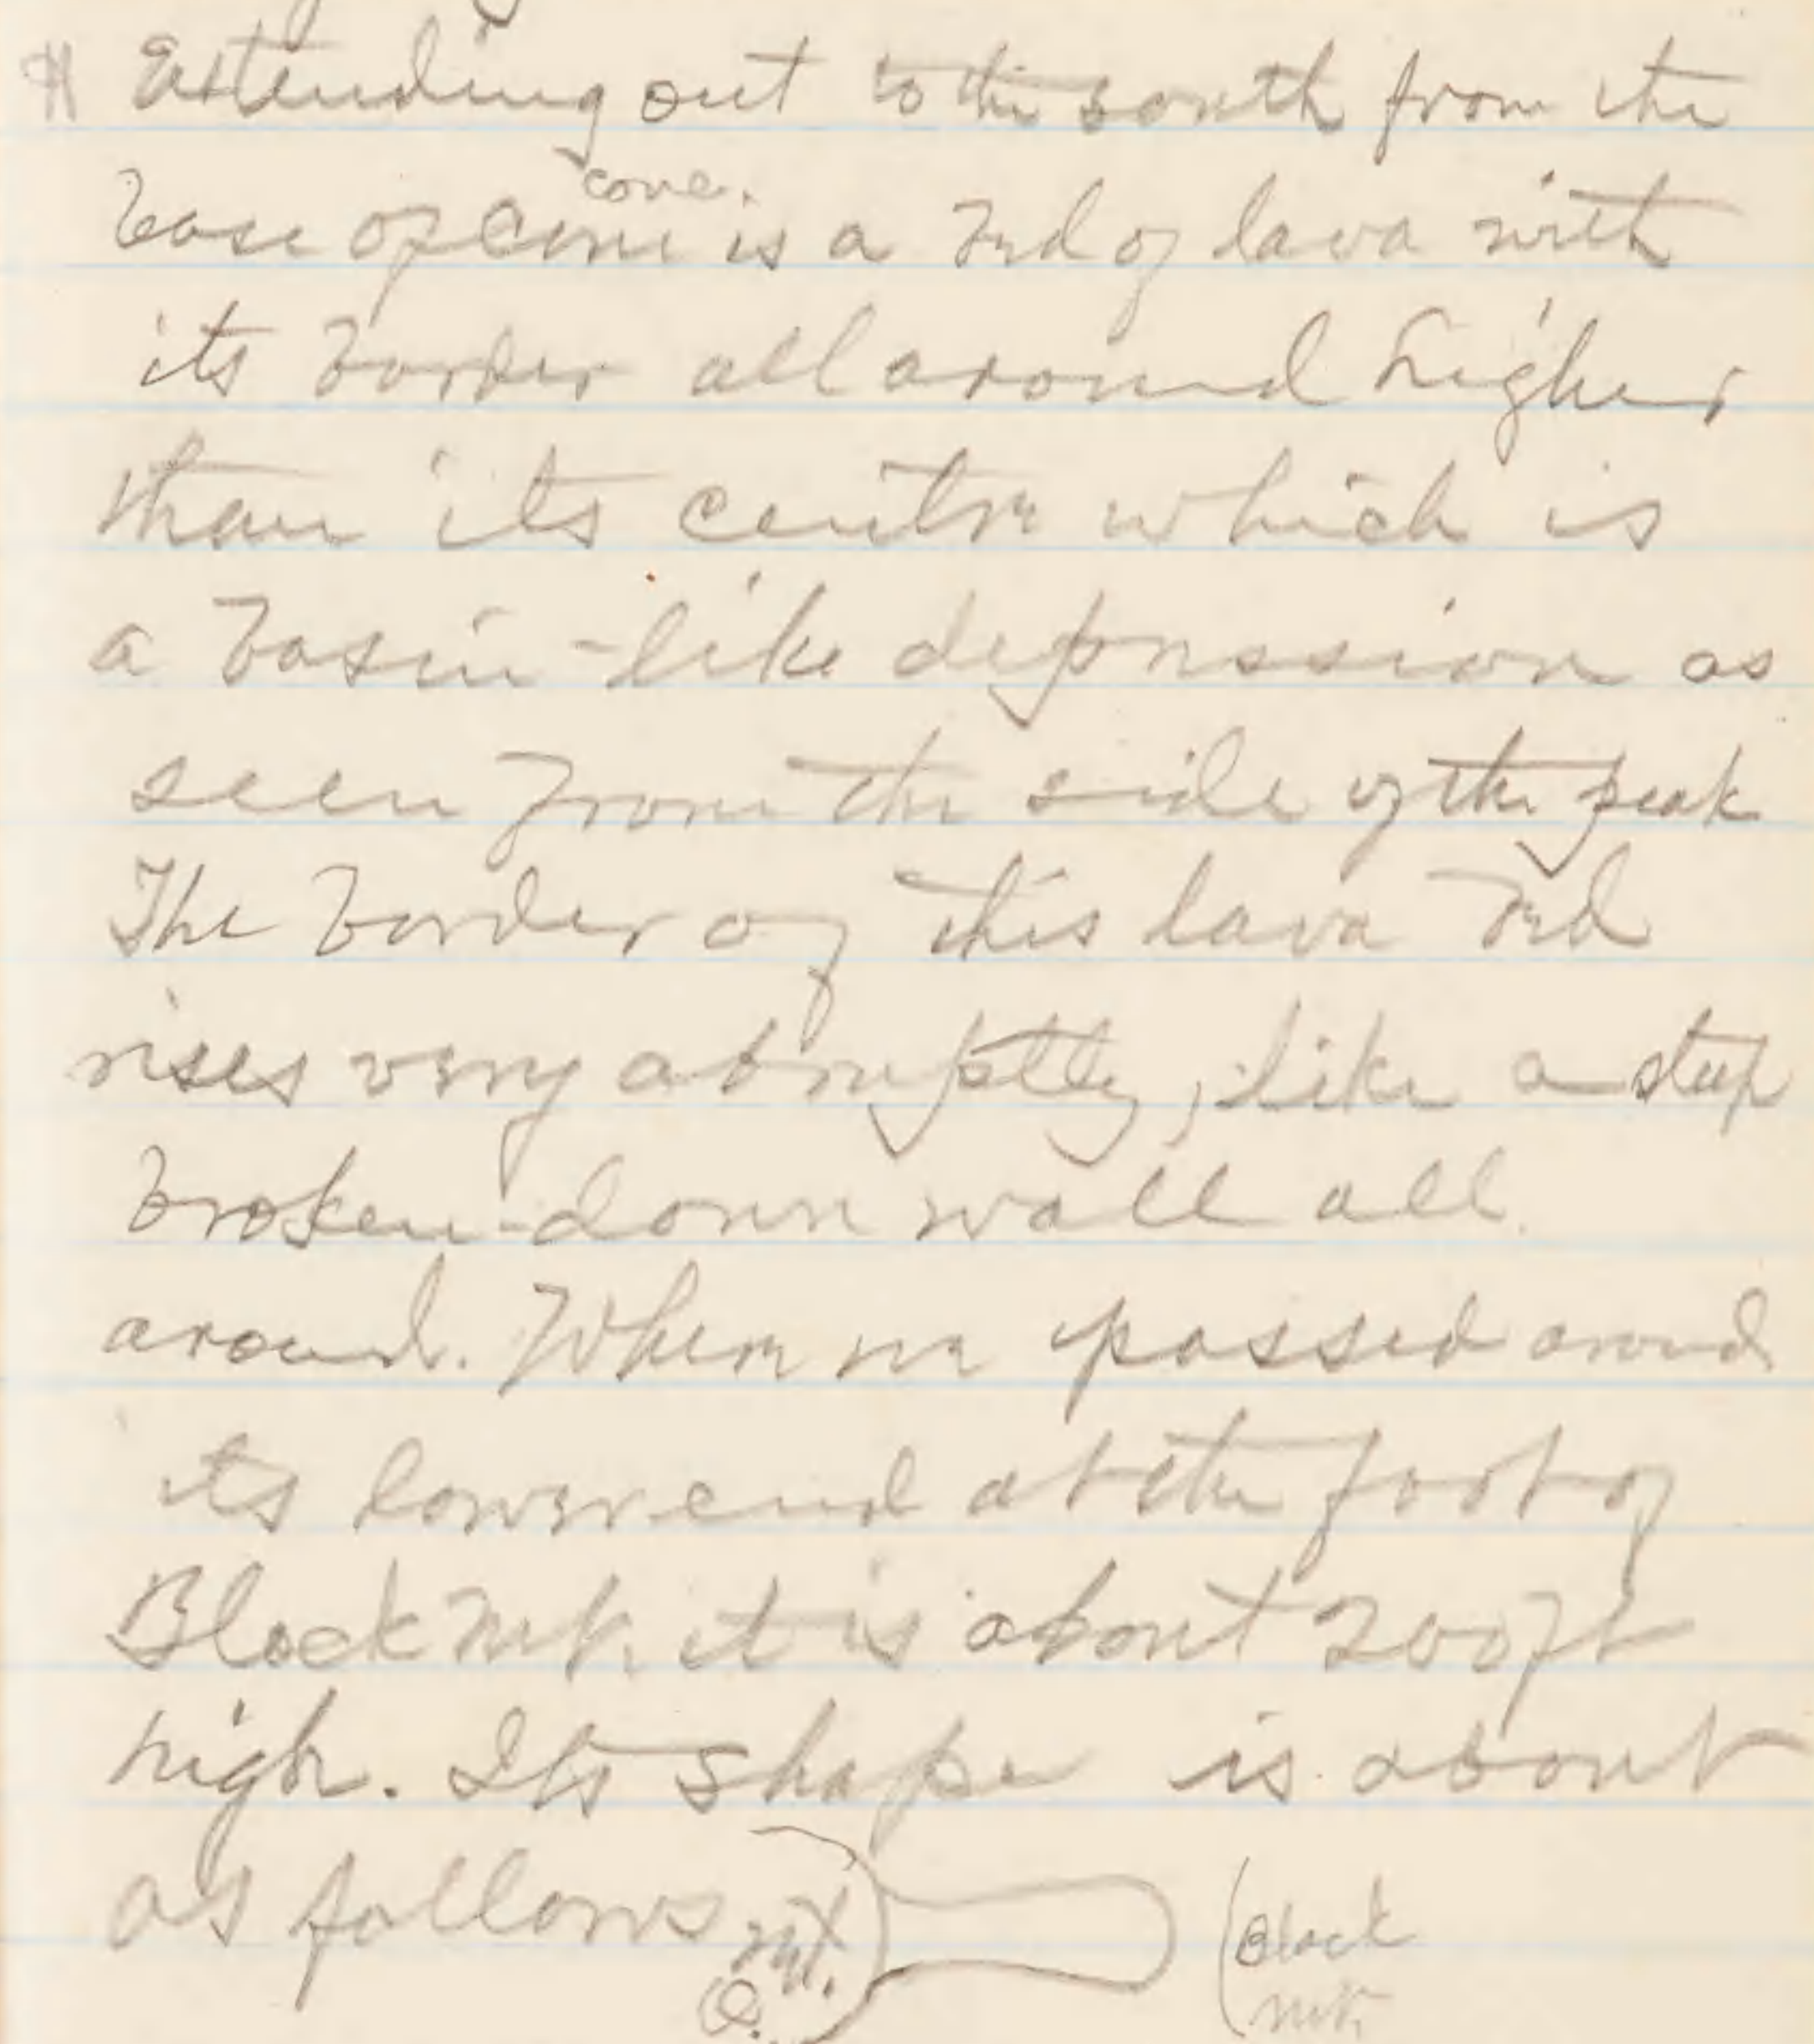 Extending out to the south from the
cone.
base of cone is a bed of lava with
its border all around higher
than its centre which is
a basin-like depression as
seen from the side of the peak
The border of this lava bed
rises very abruptly, like a steep
broken-down wall all
around. Where we passed around
its lower end at the foot of
Black Mt. it is about 200 ft
high. Its shape is about
as follows
Mt.
O.
Black
Mt.